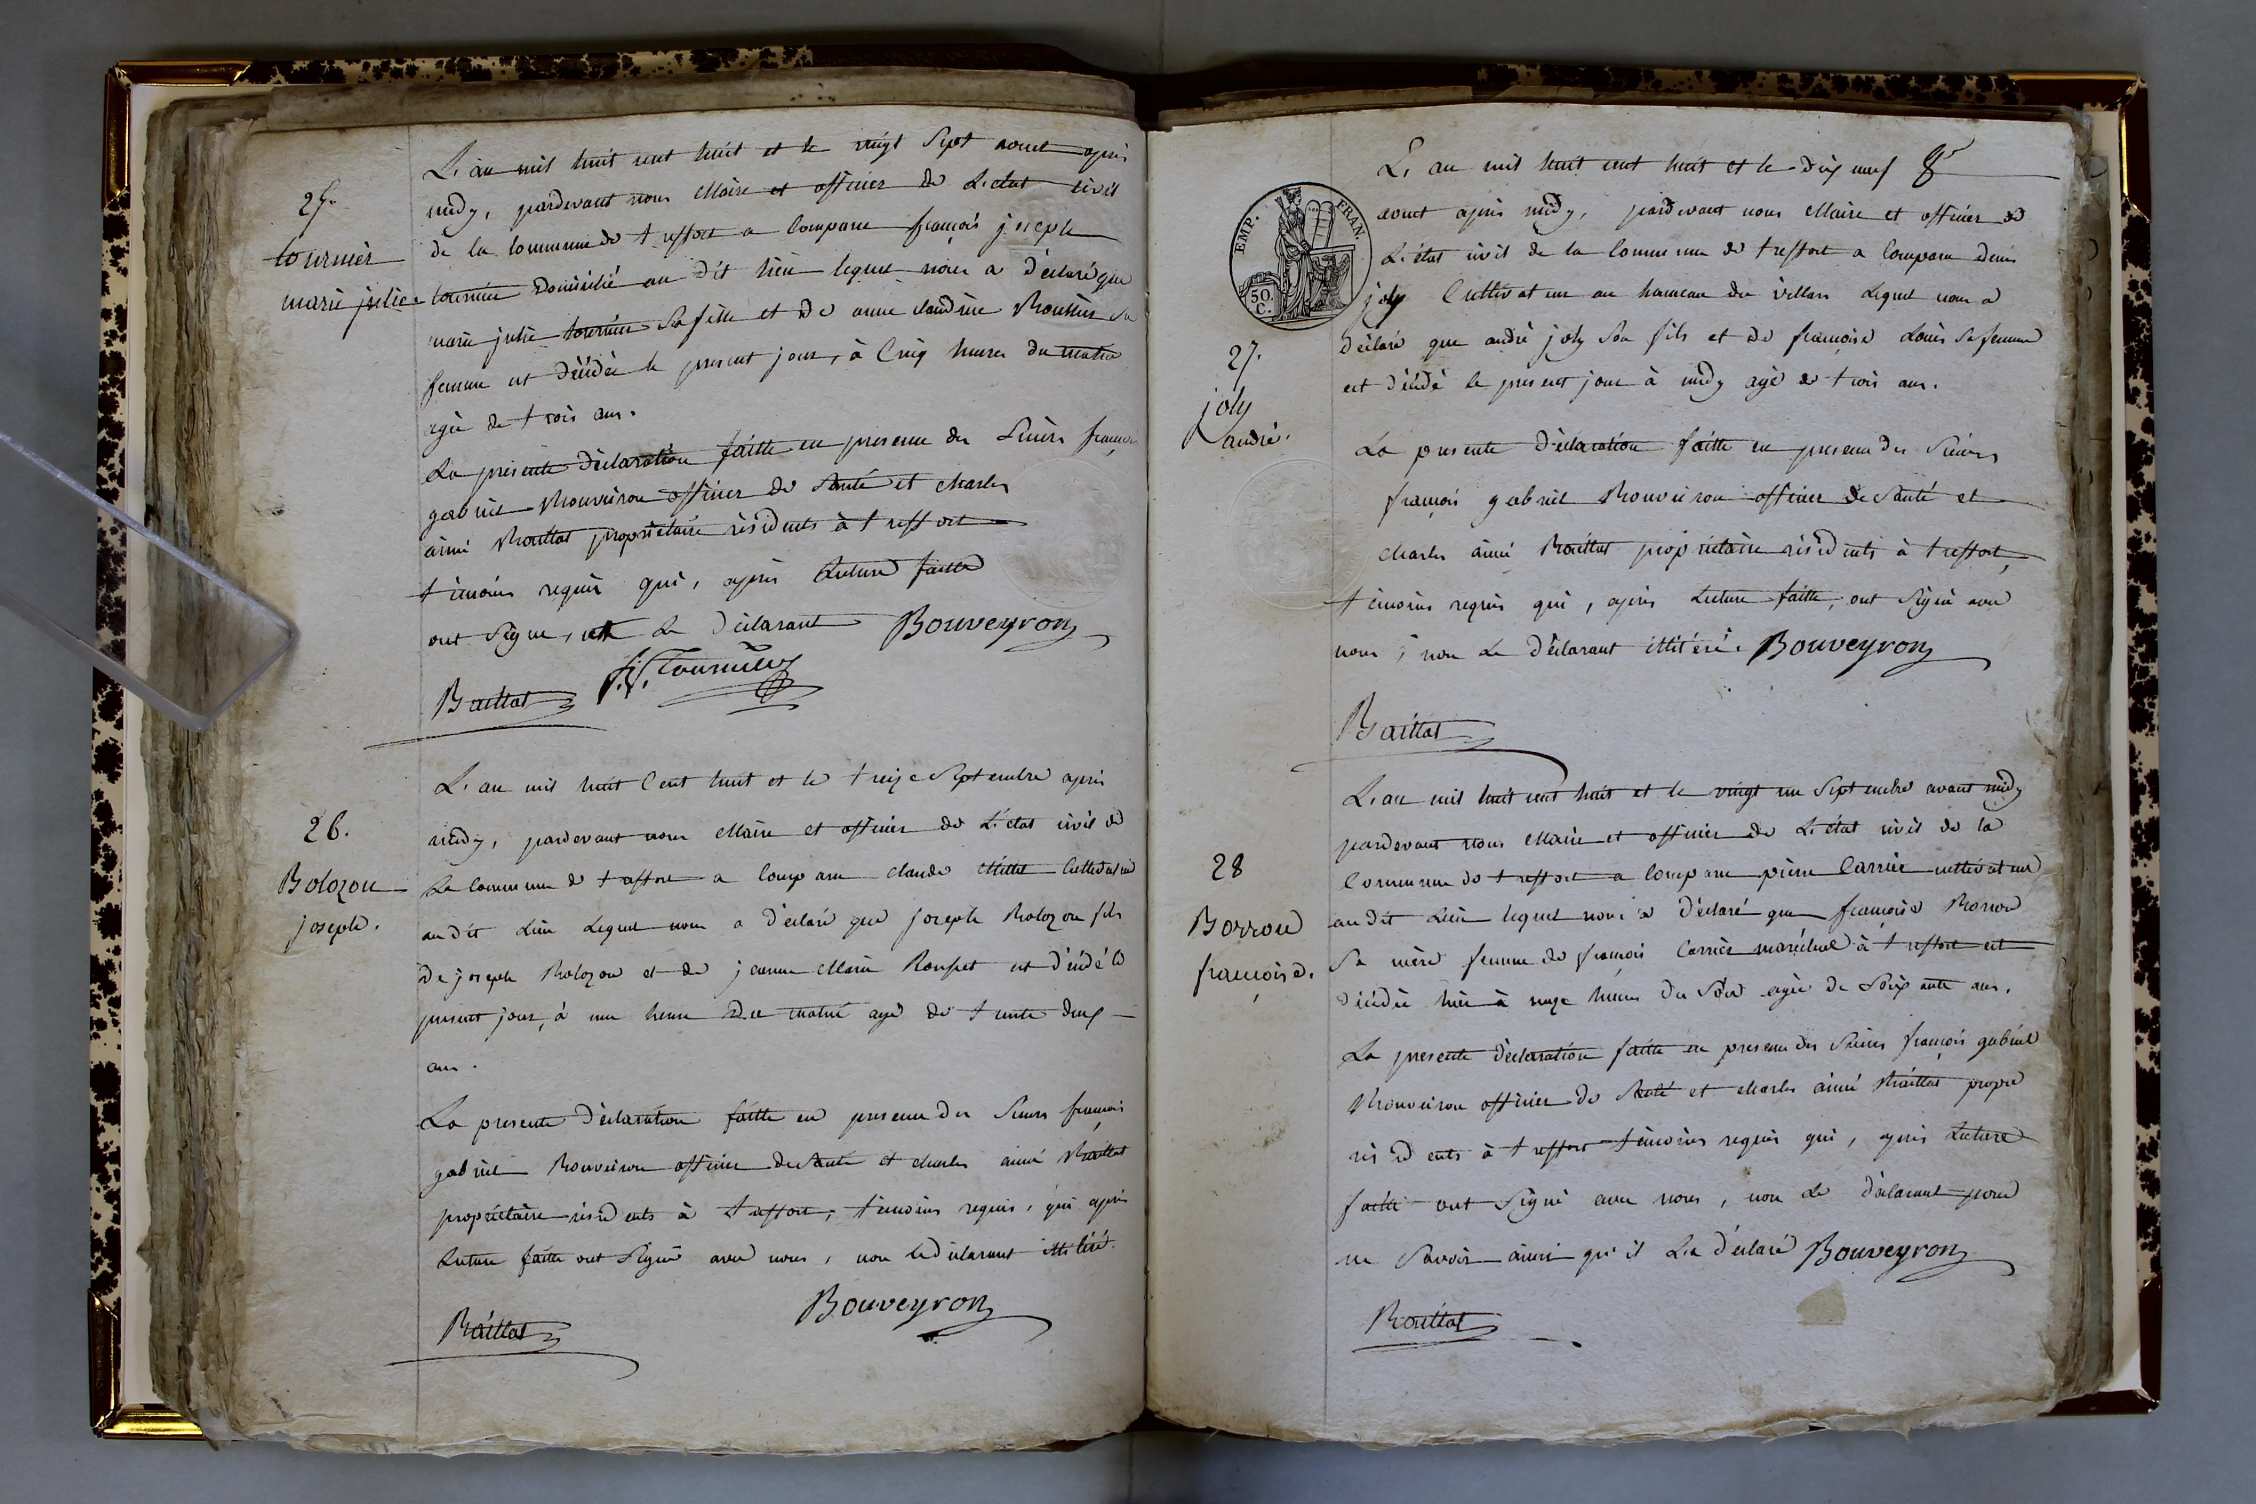 25.
tournier
marie julie
L'an mil huit cent huit et le vingt sept aout apres
midy, pardevant nous Maire et officier de L'etat civil
de la Commune de treffort a Comparu françois joseph
tournier Domicilié au dit lieu lequel nous a déclaré que
marie julie tournier Sa fille et de anne claudine Sa
femme est décédée le present jour, à Cinq heures du matin
agée de trois ans.
La présente déclaration faitte en presence des Sieurs françois
gabriel Bouveiron officier de Santé et charles
aimé Baillat propriétaire résidents à treffort
témoins requis qui, après Lecture faitte
ont Signé, Le Déclarant Bouveyron
Baillat f. j. Tournier
26.
Bolozon
joseph.
L'an mil huit Cent huit et le treize Septembre après
midy, pardevant nous Maire et officier de L'état civil de
La Commune de treffort a Comparu claude Millet Cultivateur
audit Lieu Lequel nous a déclaré que joseph Bolozon fils
de joseph Bolozon et de jeanne Marie est décédé le
present jour, à une heure du matin agé de trente deux
ans.
La presente déclaration faitte en presence des Sieurs françois
gabriel Bouveiron officier de Santé et charles aimé Baillat
propriétaire résidents à treffort, témoins requis, qui après
Lecture faitte ont Signé avec nous, non le déclarant illitéré.
Bouveyron
Baillat
EMP. FRAN.
50.
C.
27.
joly
andré.
L'an mil huit cent huit et le dix neuf
aout après midy, pardevant nous Maire et officier de
L'état civil de la Commune de treffort a Comparu denis
joly Cultivateur au hameau du villars Lequel nous a
déclaré que andré joly Son fils et de françoise Louis Sa femme
est décédé le present jour à midy agé de trois ans.
La presente déclaration faitte en presence des Sieurs
françois gabriel Bouveiron officier de Santé et
charles aimé Baillat propriétaire résidents à treffort,
témoins requis qui, après Lecture faitte, ont Signé avec
nous, non Le déclarant illitéré. Bouveyron
Baillat
28
Borron
françoise.
L'an mil huit cent huit et le vingt un Septembre avant midy
pardevant nous Maire et officier de L'état civil de la
Commune de treffort a Comparu pierre Carrier cultivateur
audit Lieu lequel nous a déclaré que françoise Borron
Sa mère femme de françois Carrier maréchal à treffort est
décédée hier à onze heures du Soir agée de Soixante ans.
La presente déclaration faitte en presence des Sieurs françois gabriel
Bouveiron officier de Santé et charles aimé Baillat propre
résidents à treffort témoins requis qui, après Lecture
faitte ont Signé avec nous, non Le déclarant pour
ne Savoir ainsi qu'il L'a déclaré Bouveyron
Baillat